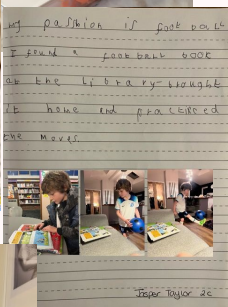 my passion is foot ball
I found a football book
at the library-brought
it home and practised
the moves.
Jasper Taylor 2c